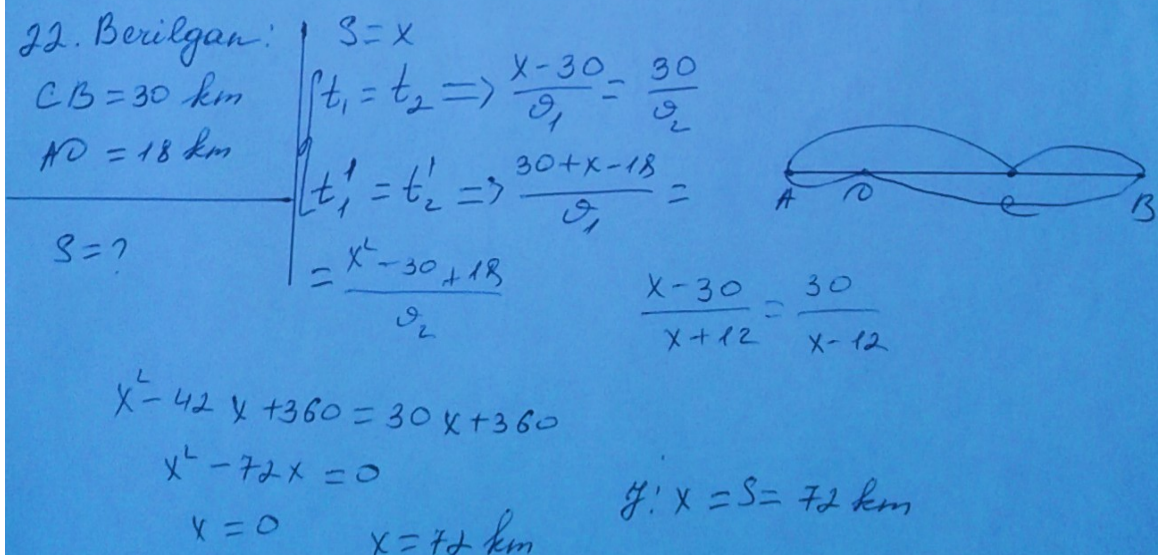 22. Berilgan:
CB = 30 km
AD = 18 km
S = ?
S = x
t₁ = t₂ => (x - 30)/ϑ₁ = 30/ϑ₂
t₁' = t₂' => (30 + x - 18)/ϑ₁ =
= (x² - 30 + 18)/ϑ₂
A D C B
(x - 30)/(x + 12) = 30/(x - 12)
x² - 42x + 360 = 30x + 360
x² - 72x = 0
x = 0 x = 72 km
J: x = S = 72 km